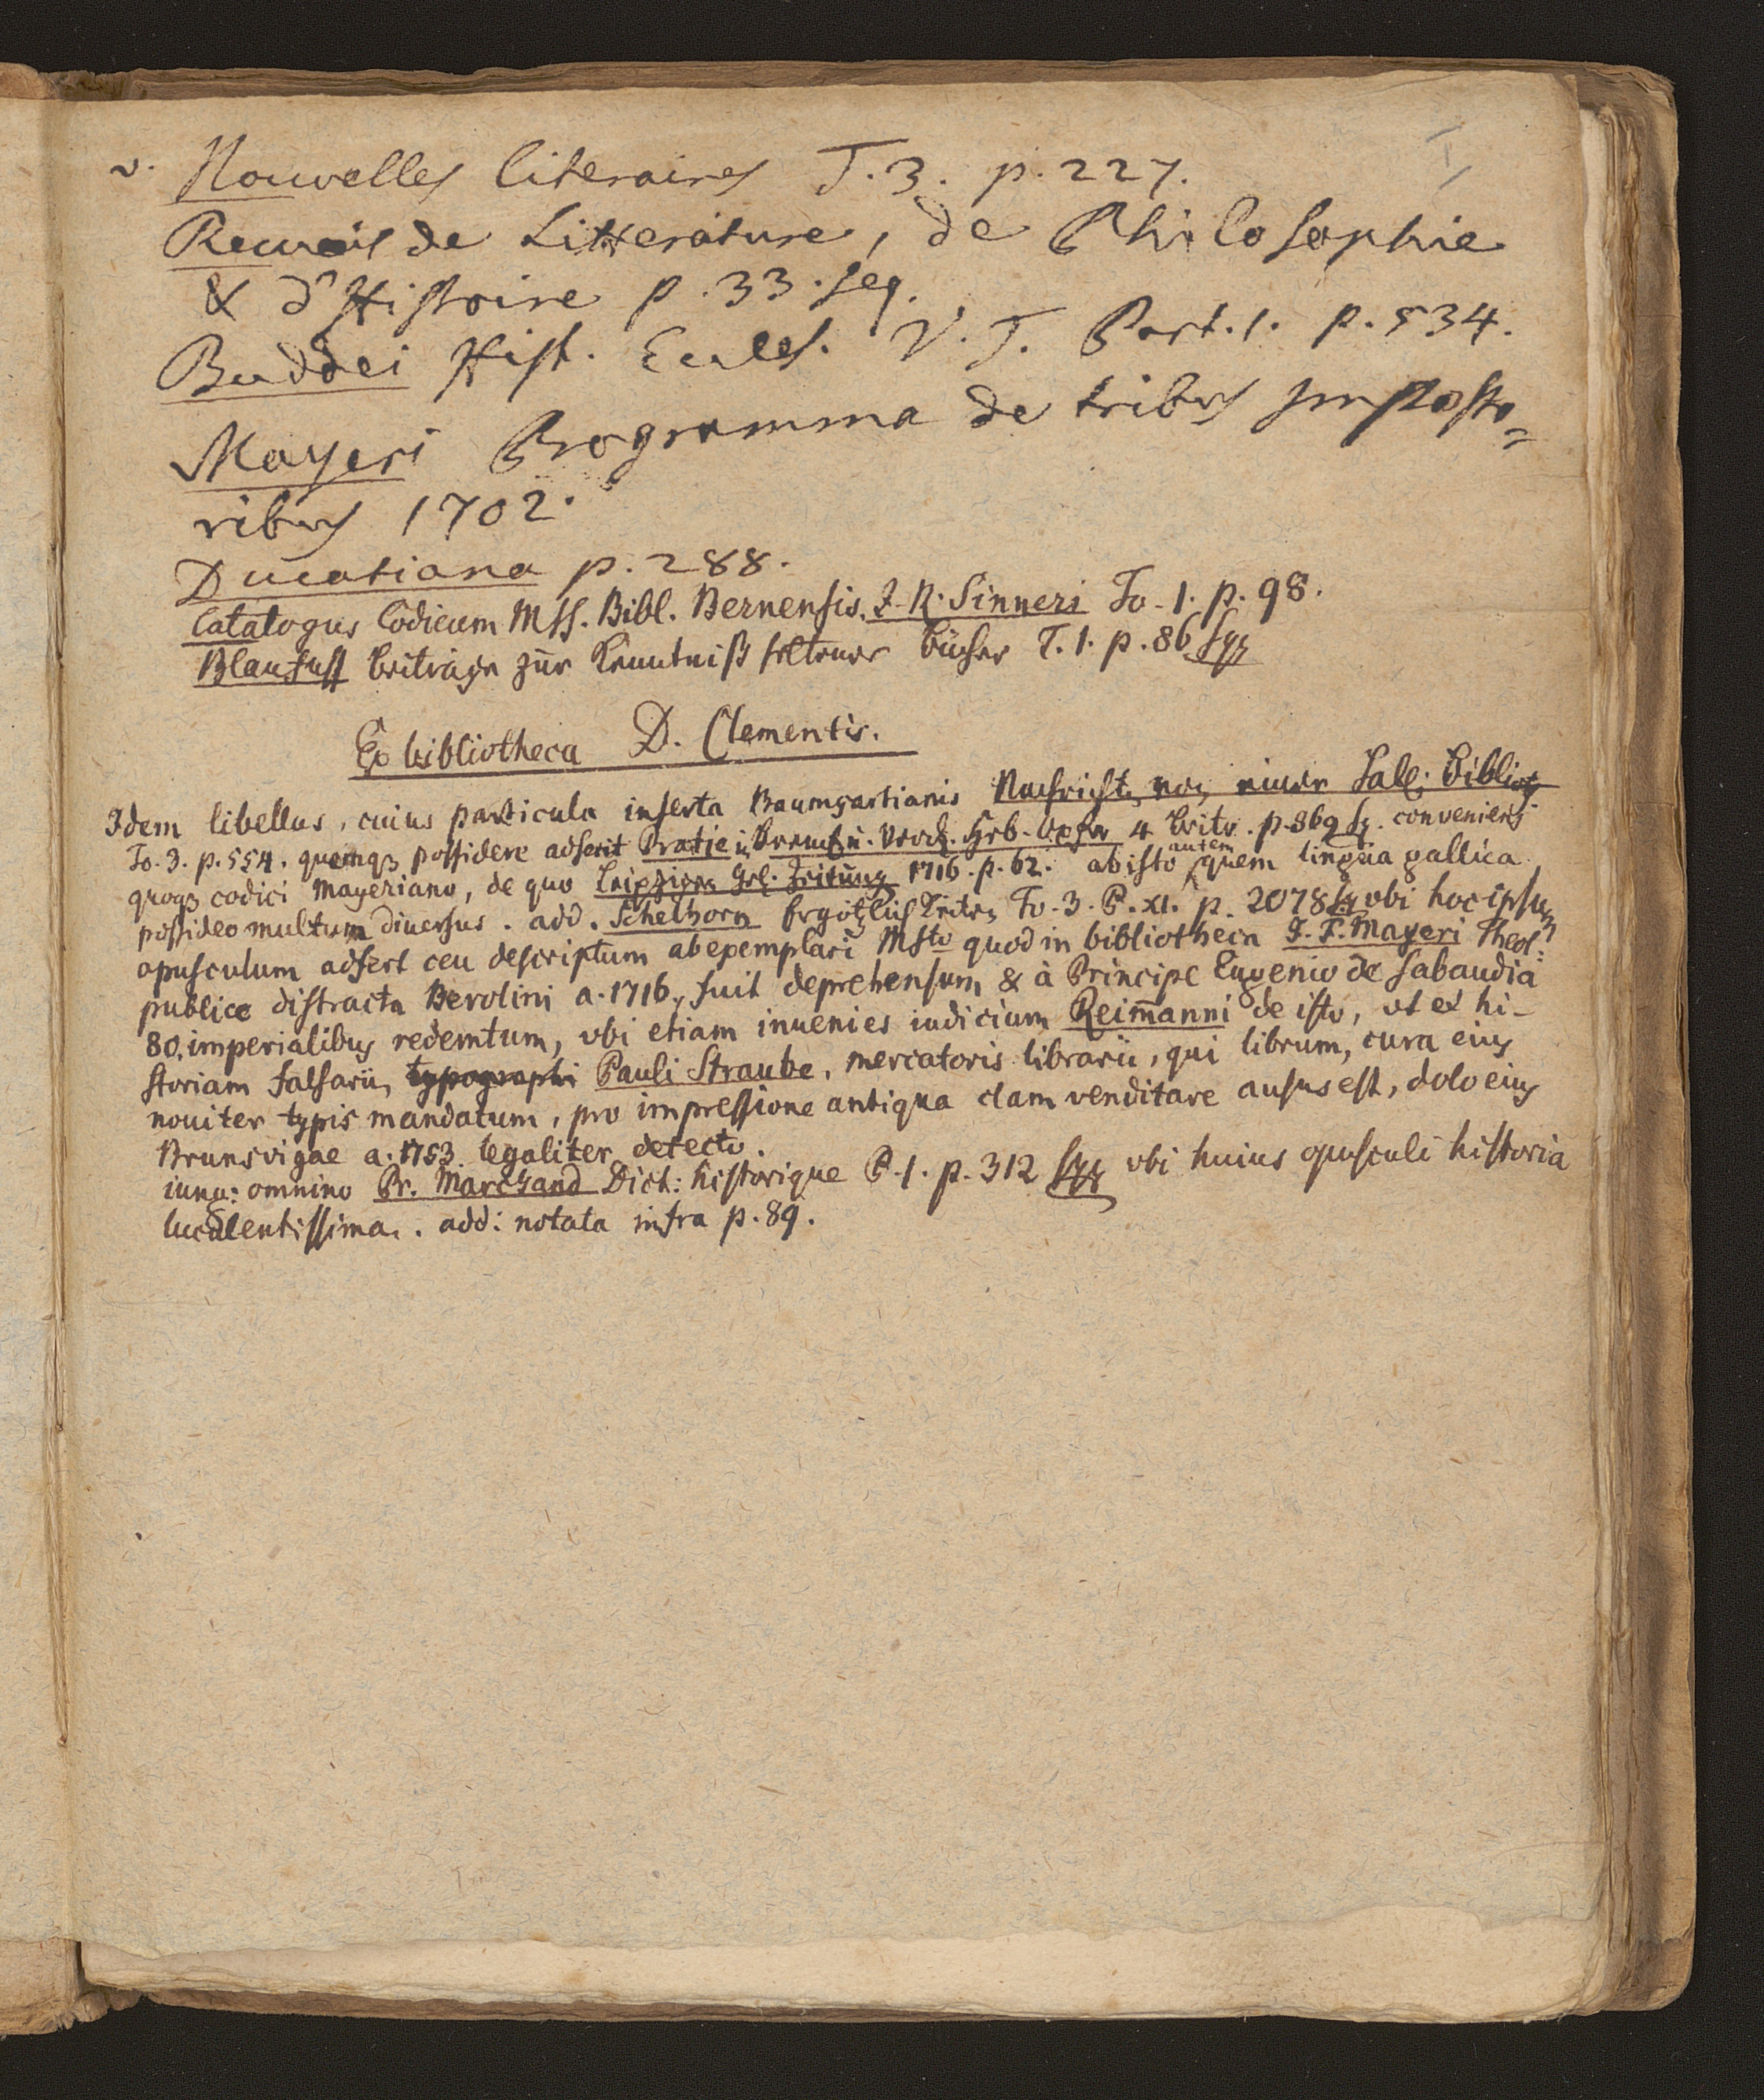 I
v. Nouvelles literaires T. 3. p. 227.
Recueil de Litterature, de Philosophie
& d'Histoire p. 33. seq.
Buddei Hist. Eccles. V. T. Part. 1. p. 534.
Mayeri Programma de tribus Imposto=
ribus 1702.
Ducatiana p. 288.
Catalogus Codicum Mss. Bibl. Bernensis. J. R. Sinneri To. 1. p. 98.
Blaufuss beiträge zur Kenntniß seltener bücher T. 1. p. 86 sqq
Ex bibliotheca D. Clementis.
Idem libellus, cuius particula inserta Baumgartianis Nachrichten von einer Hall. Biblioth
To. 3. p. 554. quemq3 possidere adserit Pratje in Brem. u. Verd. Heb-Opfer 4 beitr. p. 869 sq. conveniens
quoq3 codici Mayeriano, de quo Leipziger Gel. Zeitung 1716. p. 62. ab isto autem quem lingua gallica
possideo multum diuersus. add. Schelhorn Ergötzlichkeiten To. 3. P. XI. p. 2078 sq vbi hoc ipsum
opusculum adfert ceu descriptum ab exemplari Msto quod in bibliotheca J. F. Mayeri Theol:
publice distracta Berolini a. 1716, fuit deprehensum & à Principe Eugenio de Sabaudia
80. imperialibus redemtum, vbi etiam inuenies iudicium Reimanni de isto, vt et hi-
storiam falsarii, typographi Pauli Straube, mercatoris librarii, qui librum, cura eius
nouiter typis mandatum, pro impressione antiqua clam venditare ausus est, dolo eius
Brunsvigae a. 1753 legaliter detecto.
iung: omnino Pr. Marchand Dict: historique P. 1. p. 312 sqq vbi huius opusculi historia
luculentissima. add: notata infra p. 89.